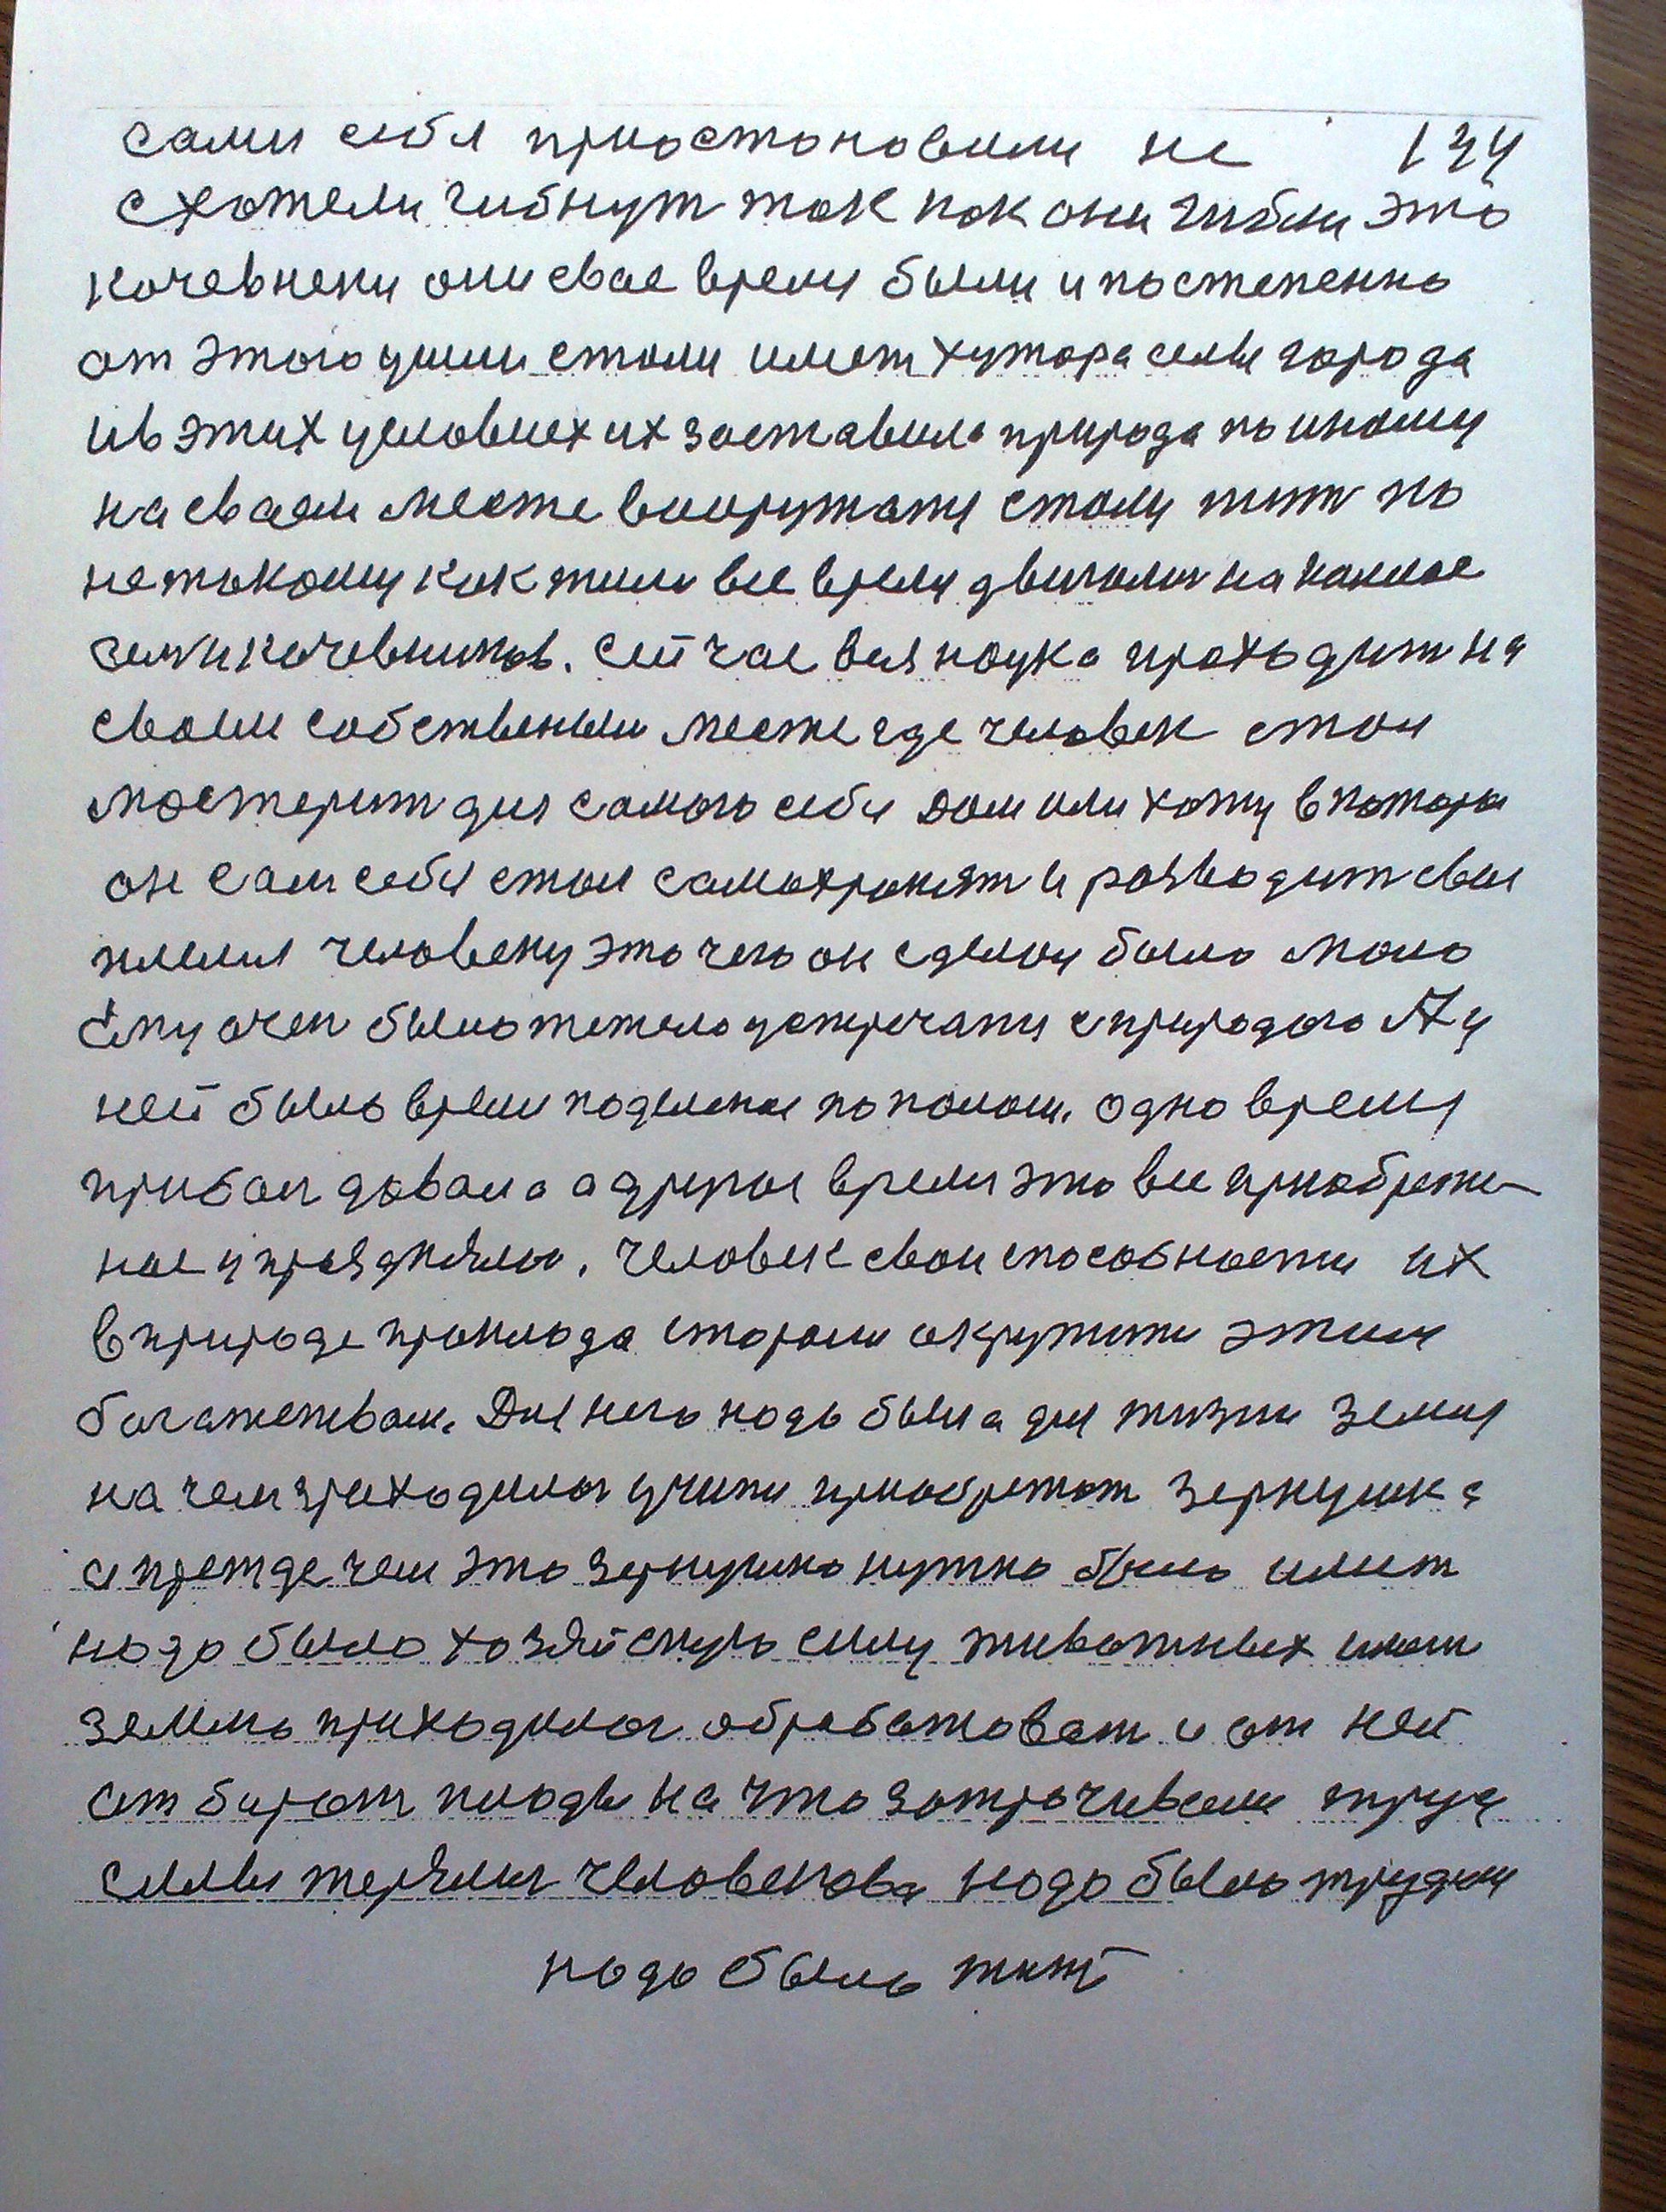 сами себя приостоновили не 134
схотели гибнут так как они гибли это
кочевнеки они свае время были и постепенно
от этого ушли стали имет хутора селы города
и в этих условиех их заставила природа по иному
на сваем месте вооружатя стали жит по
не такому как жили все время двигалис на
земли кочевников. Сейчас вся наука проходит на
своем собственым месте где человек стал
мостерит для самого себя дом или хату в которы
он сам себя стал самохранят и разводит свае
племя человеку это чего он сделал было мало
Ему очен было тежело устречатя с природого А у
ней было время поделеное пополам. одно время
прибал довала а другое время это все приобрете
ное упраздняла. Человек свои способности их
в природе прокладал сторалс окружити этим
богатетвам. Для него надо была для жизни земля
на чем приходилос учити приобретат зернушка
а прежде чем это зернушко нужно было имет
надо было хозяйскую силу животных имет
землю приходилос обработоват и от ней
отбират плоды на что затрачивали труд
силы терялис человекова надо было трудит
надо было жит